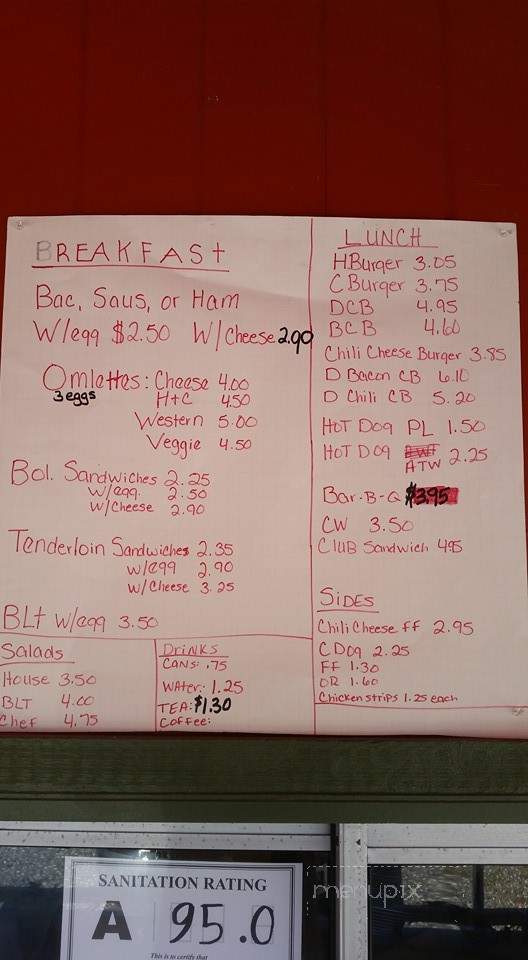 BREAKFASt
Bac, Saus, or Ham
W/egg $2.50 W/Cheese 2.90
Omlettes: Cheese 4.00
3 eggs
H+C 4.50
Western 5.00
Veggie 4.50
Bol. Sandwiches 2.25
w/egg. 2.50
w/Cheese 2.90
Tenderloin Sandwiches 2.35
w/egg 2.90
w/Cheese 3.25
BLt w/egg 3.50
Salads
House 3.50
BLT 4.00
Chef 4.75
DrinKs
CANS: .75
WAter: 1.25
TEA: $1.30
Coffee:
LUNCH
HBurger 3.05
CBurger 3.75
DCB 4.95
BCB 4.60
Chili Cheese Burger 3.85
D Bacon CB 6.10
D Chili CB 5.20
HOT DOg PL 1.50
HOT DOg ATW 2.25
Bar-B-Q $3.95
CW 3.50
CluB Sandwich 4.95
SiDES
Chili Cheese FF 2.95
C DOg 2.25
FF 1.30
OR 1.60
Chicken strips 1.25 each
SANITATION RATING
A 95.0
This is to certify that
menupix